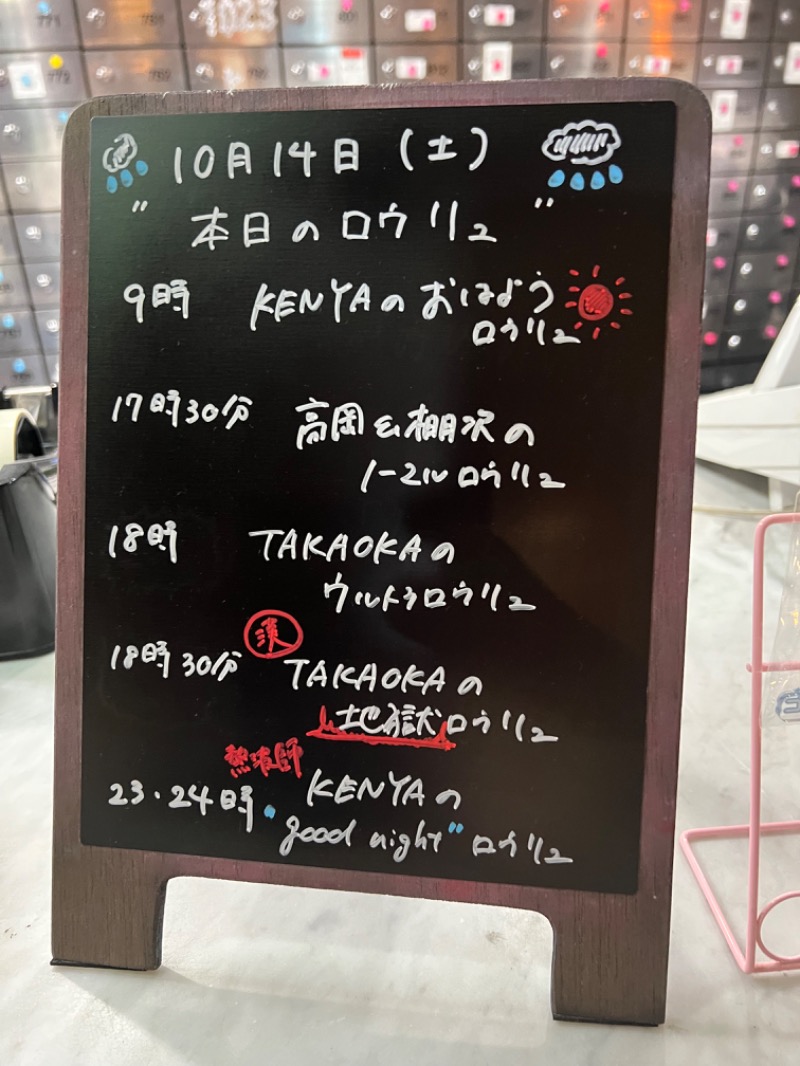 10月14日(土)
"本日のロウリュ"
9時 KENYAのおはよう
ロウリュ
17時30分 高岡&棚沢の
ノーマルロウリュ
18時 TAKAOKAの
ウルトラロウリュ
18時30分 TAKAOKAの
地獄ロウリュ
熱波師
23・24時 KENYAの
"good night"ロウリュ